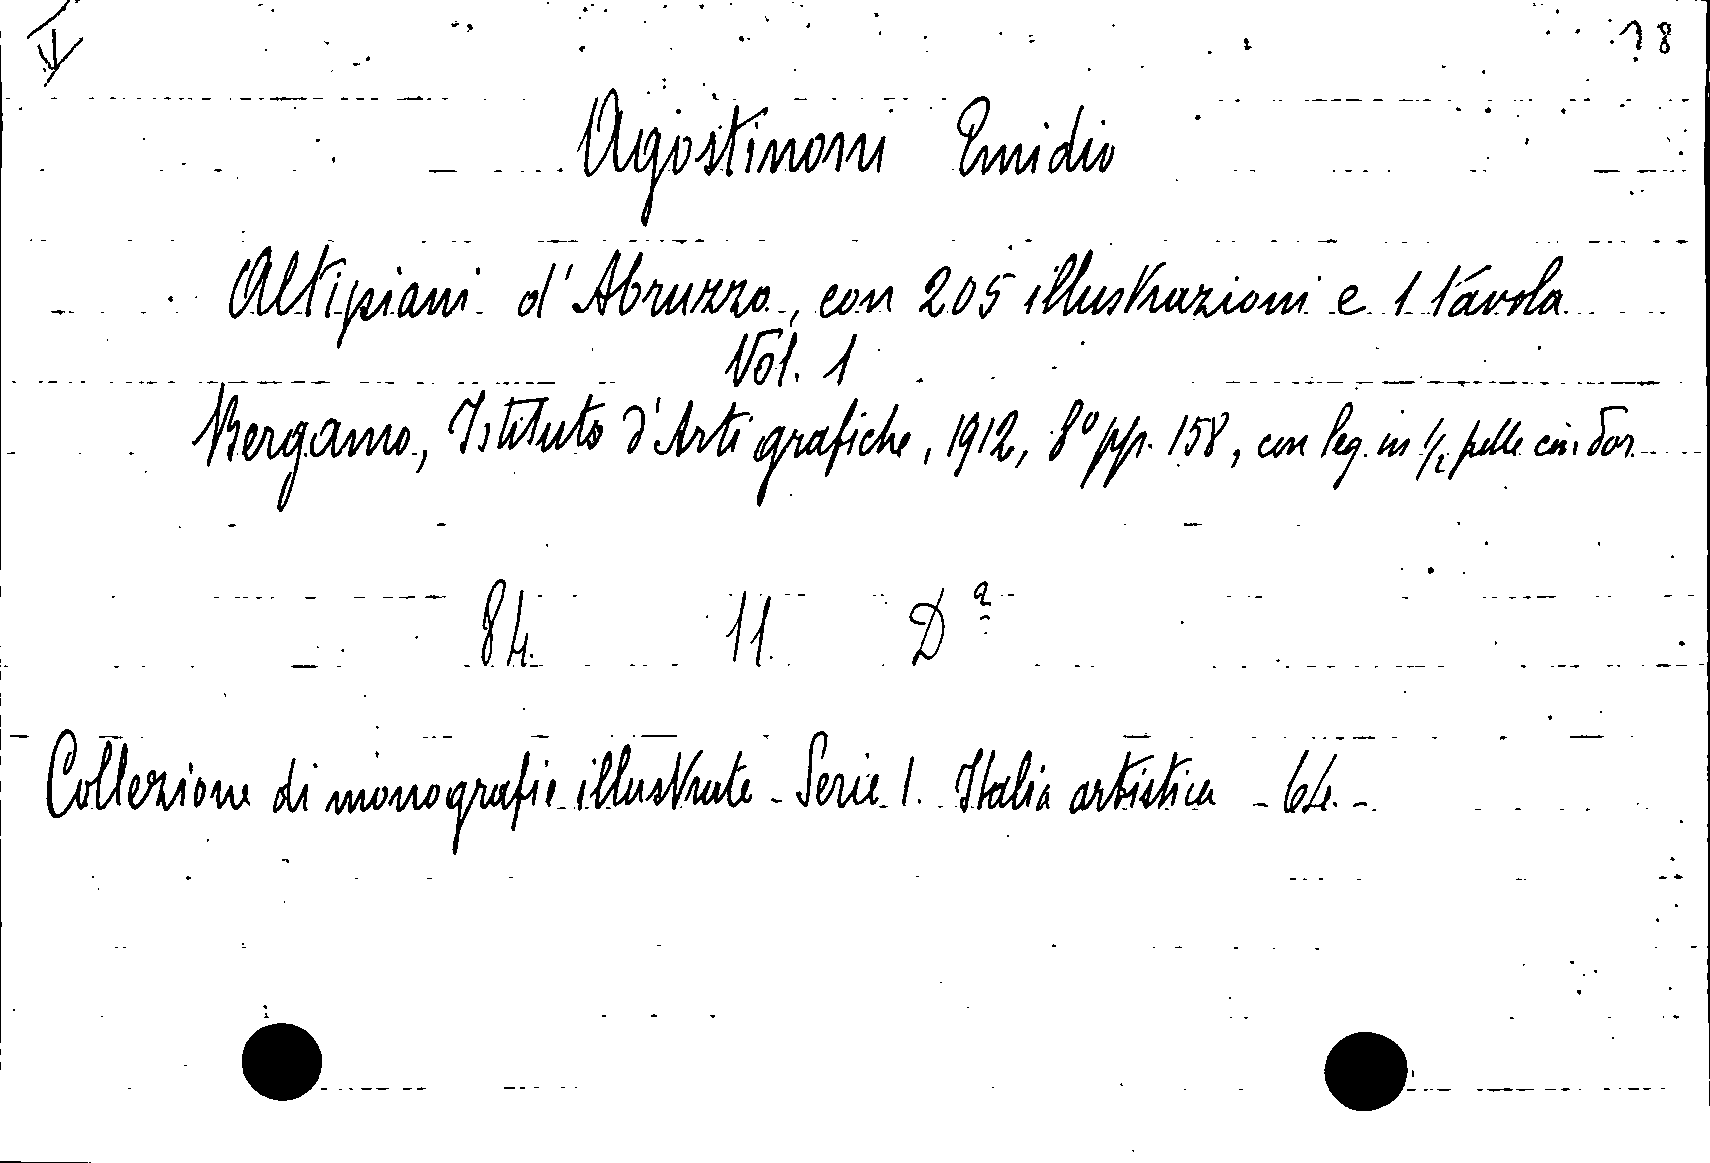 V 18
Agostinoni Emidio
Altipiani d'Abruzzo, con 205 illustrazioni e 1 tavola
Vol. 1
Bergamo, Istituto d'Arti grafiche, 1912, 8° pp. 158, con leg. in 1/2 pelle con dor.
84. 11. Dª
Collezione di monografie illustrate - Serie 1. Italia artistica - 64. -